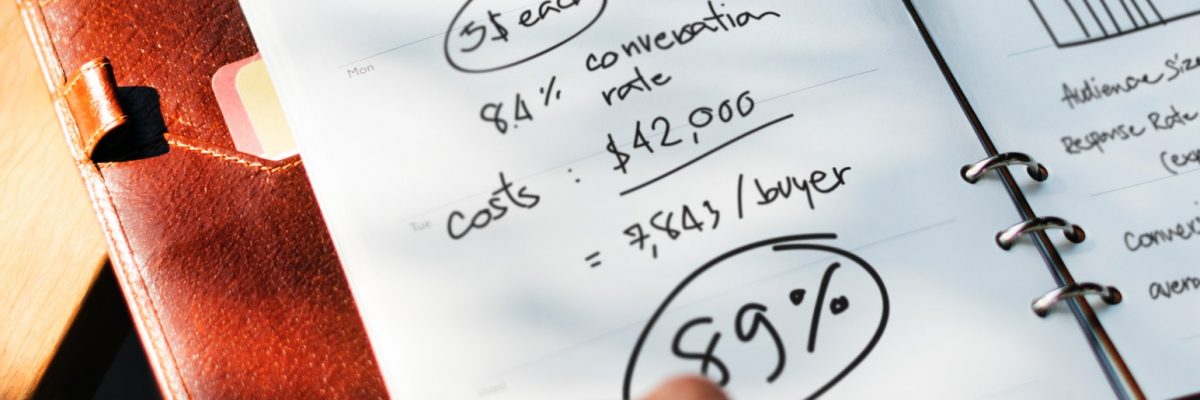 5$ each
Mon
8.4% conversation
rate
Tue
costs : $42,000
= 7,843 / buyer
Wed
89%
Audience Size
Response Rate
(exp
Conversi
avera